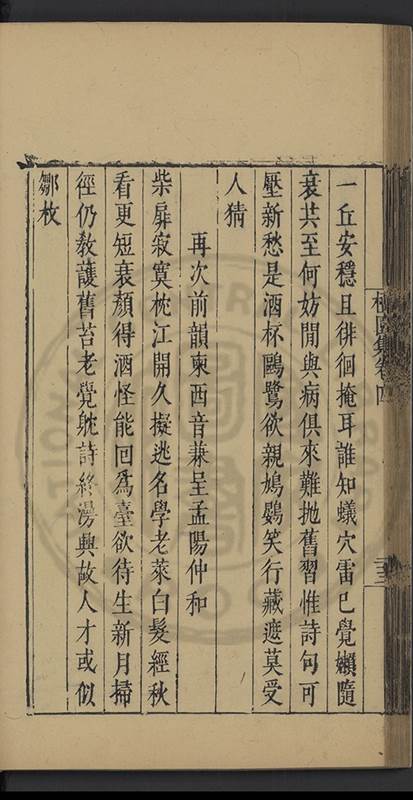 一丘安穩且徘徊掩耳誰知蟻穴雷已覺嬾隨
衰共至何妨閒與病俱來難抛舊習惟詩句可
壓新愁是酒杯鷗鷺欲親鳩鷃笑行藏遮莫受
人猜
再次前韻柬西音兼呈孟陽仲和
柴扉寂寞枕江開久擬逃名學老萊白髮經秋
看更短衰顏得酒怪能回爲臺欲待生新月掃
徑仍教護舊苔老覺躭詩終漫興故人才或似
鄒枚